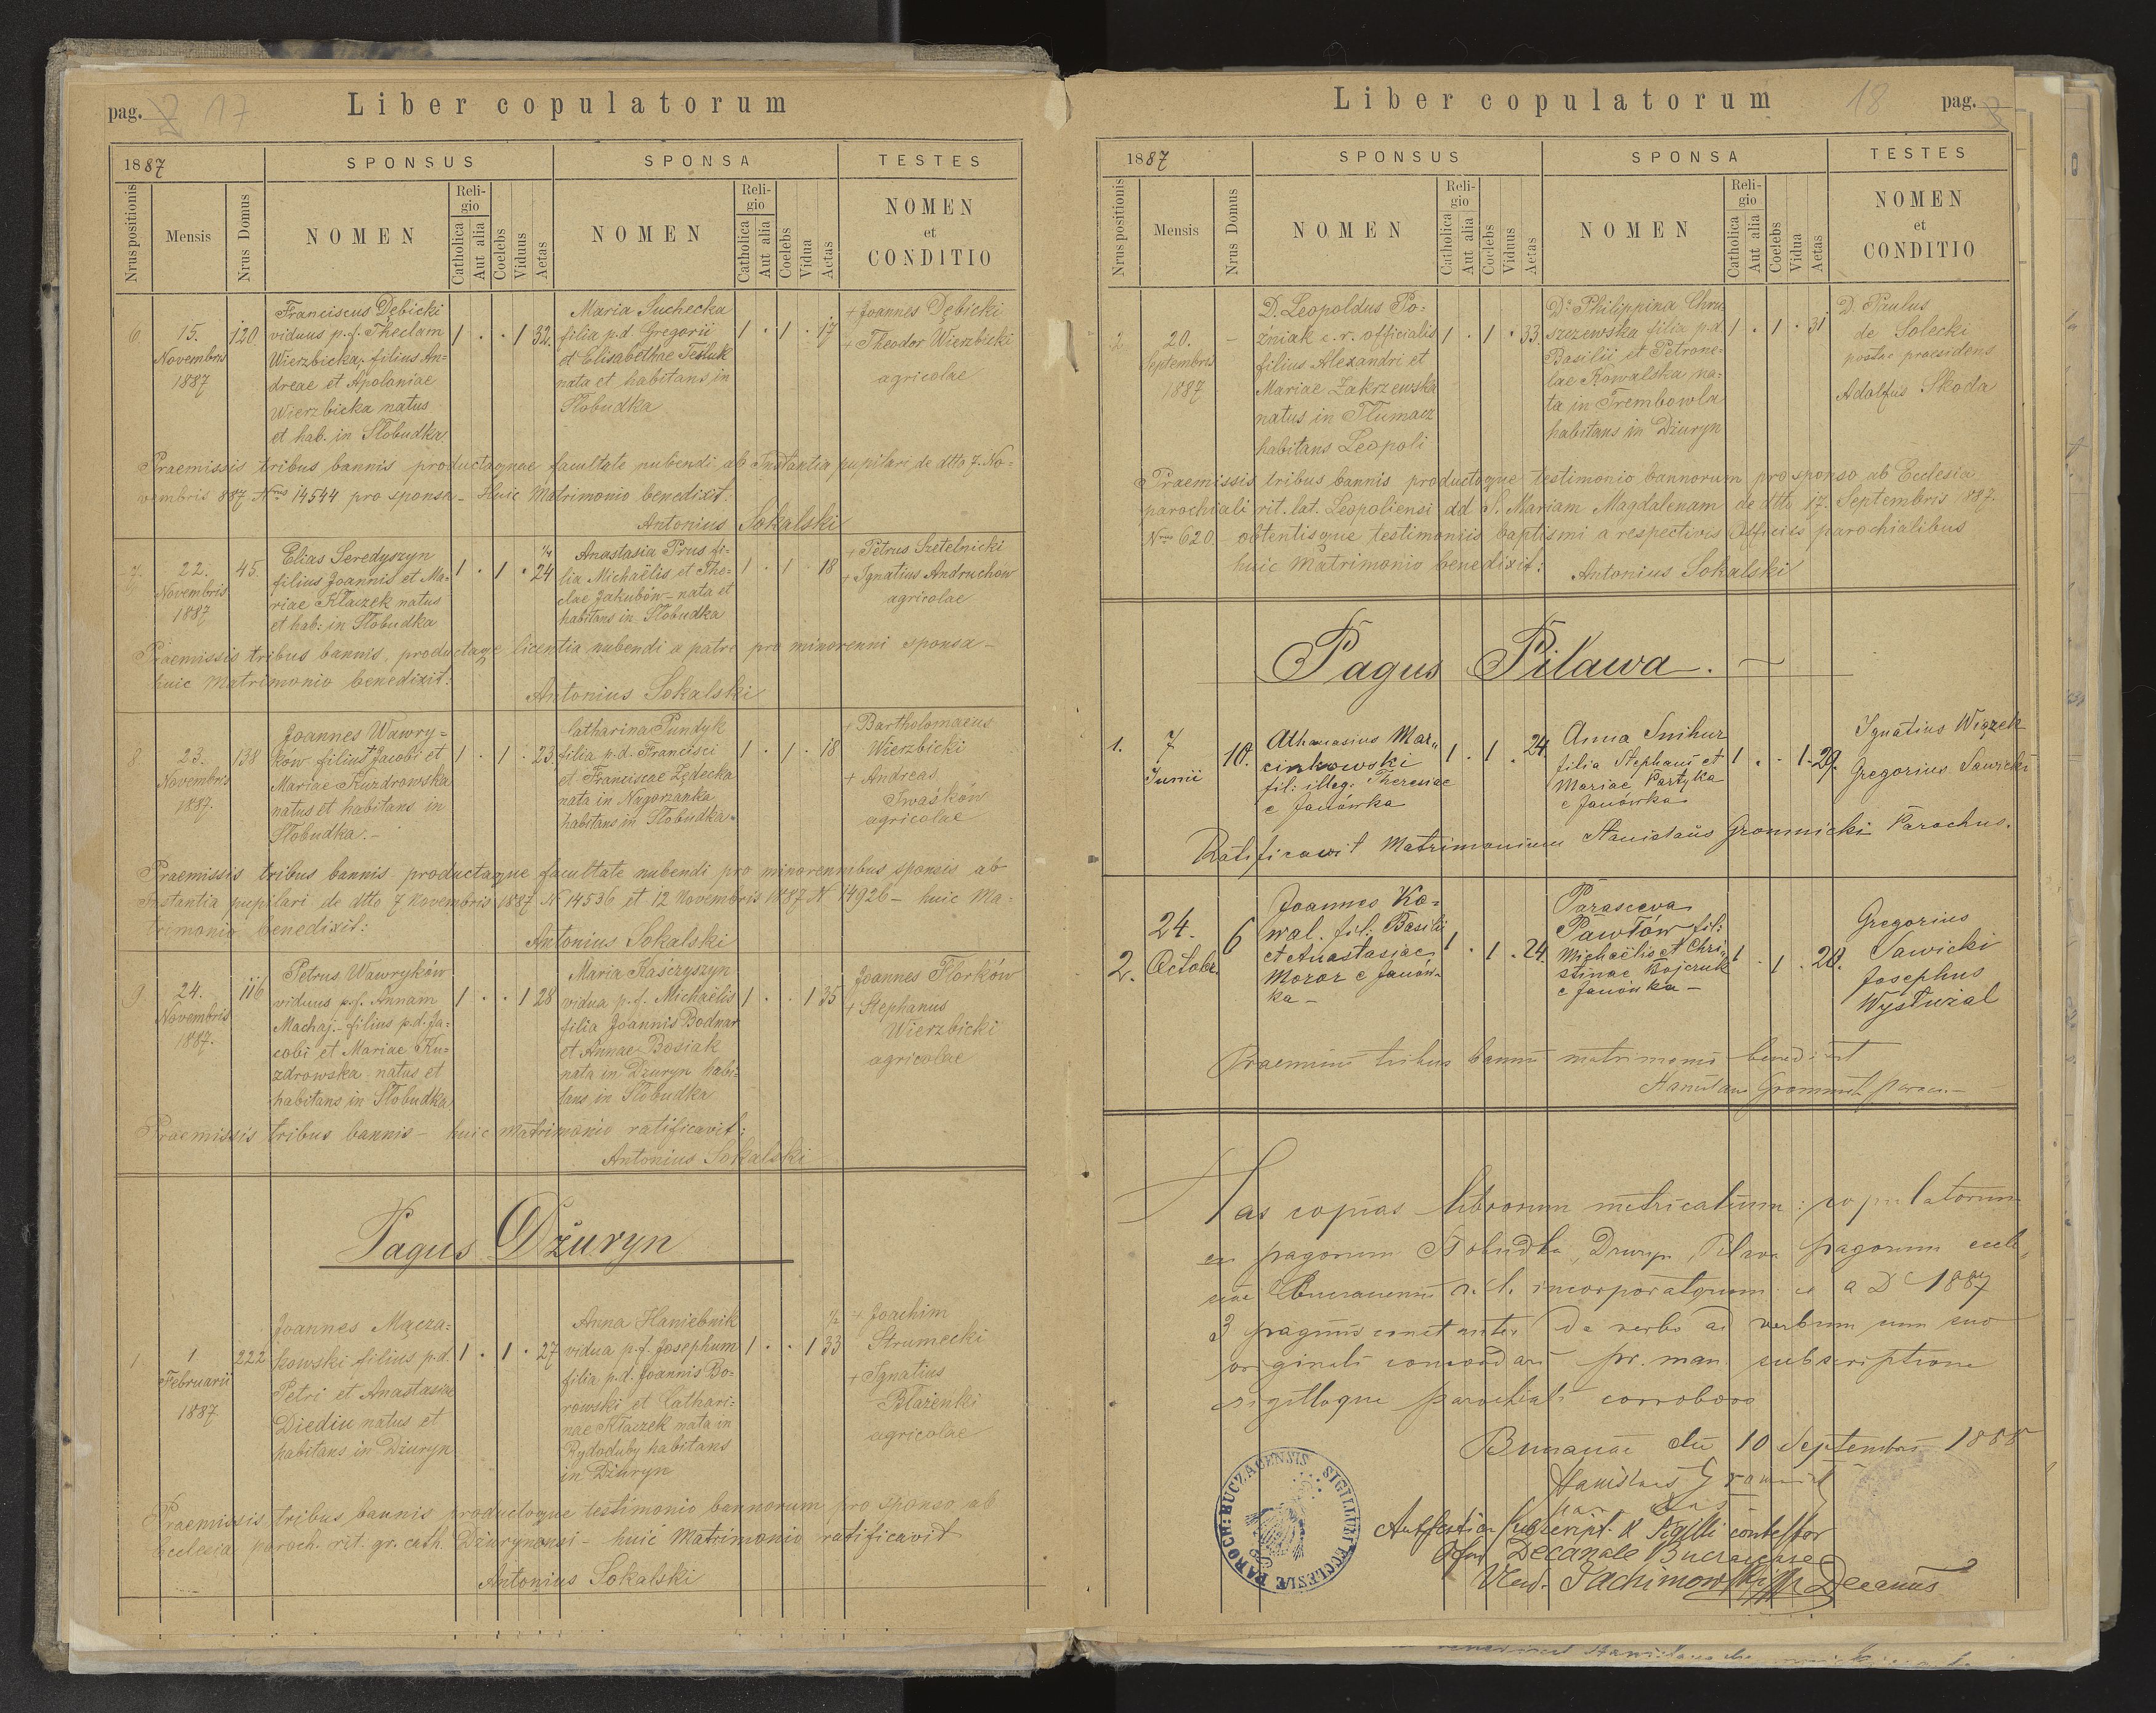 pag. 17
Liber copulatorum
1887
SPONSUS
SPONSA
TESTES
Nrus positionis
Mensis
Nrus Domus
NOMEN
Religio
Catholica
Aut alia
Coelebs
Viduus
Aetas
NOMEN
Religio
Catholica
Aut alia
Coelebs
Vidua
Aetas
NOMEN
et
CONDITIO
6.
15.
Novembris
1887
120
Franciscus Dębicki
viduus p. f. Theclam
Wierzbicka, filius An=
dreae et Apoloniae
Wierzbicka natus
et hab. in Słobudka
1 . . 1 32.
Maria Suchecka
filia p.d. Gregorii
et Elisabethae Tesluk
nata et habitans in
Słobudka
1 . 1 . 17
+ Joannes Dębicki
+ Theodor Wierzbicki
agricolae
Praemissis tribus bannis productaque facultate nubendi ab Instantia pupilari de dtto 7. No=
vembris 887. Nrus 14544 pro sponsa - Huic Matrimonio benedixit:
Antonius Sokalski
7.
22.
Novembris
1887
45.
Elias Seredyszyn
filius Joannis et Ma=
riae Kłaczek natus
et hab: in Słobudka
1 . 1 . 24
Anastasia Prus fi=
lia Michaëlis et The=
clae Jakubów - nata et
habitans in Słobudka
1 . 1 . 18
+ Petrus Szetelnicki
+ Ignatius Andruchow
agricolae
Praemissis tribus bannis, productaque licentia nubendi a patre pro minorenni sponsa -
huic Matrimonio benedixit:
Antonius Sokalski
8.
23.
Novembris
1887.
138
Joannes Wawry=
ków filius Jacobi et
Mariae Kuzdrowska
natus et habitans in
Słobudka. -
1 . 1 . 23.
Catharina Pundyk
filia p.d. Francisci
et Franciscae Zędecka
nata in Nagorzanka
habitans in Słobudka
1 . 1 . 18
+ Bartholomaeus
Wierzbicki
+ Andreas
Iwaśków
agricolae
Praemissis tribus bannis productaque facultate nubendi pro minorennibus sponsis ab
Instantia pupilari de dtto 7 Novembris 1887 N 14536 et 12 Novembris 1887 N. 14926 - huic Ma=
trimonio benedixit:
Antonius Sokalski
9.
24.
Novembris
1887.
116
Petrus Wawryków
viduus p.f. Annam
Machaj - filius p.d. Ja=
cobi et Mariae Ku=
zdrowska natus et
habitans in Słobudka
1 . . 1 28
Maria Kaśczyszyn
vidua p.f. Michaëlis
filia Joannis Bodnar
et Annae Bosiak
nata in Dzuryn habi=
tans in Słobudka
1 . . 1 35
Joannes Florków
+ Stephanus
Wierzbicki
agricolae
Praemissis tribus bannis - huic Matrimonio ratificavit:
Antonius Sokalski
Pagus Dżuryn
1.
1.
Februarii
1887
222
Joannes Mącza=
kowski filius p.d.
Petri et Anastasiae
Diediu natus et
habitans in Dżuryn
1 . 1 . 27
Anna Haniebnik
vidua p.f. Josephum
filia p.d. Joannis Bo=
rowski et Cathari=
nae Kłaczek nata in
Rydoduby habitans
in Dżuryn
1 . . 1 33
+ Joachim
Strumecki
+ Ignatius
Błażenki
agricolae
Praemissis tribus bannis productoque testimonio bannorum pro sponso ab
Ecclesia paroch. rit. gr. cath. Dżurynensi - huic Matrimonio ratificavit
Antonius Sokalski
Liber copulatorum
18 pag.
1887
SPONSUS
SPONSA
TESTES
Nrus positionis
Mensis
Nrus Domus
NOMEN
Religio
Catholica
Aut alia
Coelebs
Viduus
Aetas
NOMEN
Religio
Catholica
Aut alia
Coelebs
Vidua
Aetas
NOMEN
et
CONDITIO
2
20.
Septembris
1887
-
D. Leopoldus Po=
źniak c. r. officialis
filius Alexandri et
Mariae Zakrzewska
natus in Tłumacz
habitans Leopoli
1 . 1 . 33.
Da Philippina Chru
szczewska filia p.d.
Basilii et Petrone=
lae Kowalska na=
ta in Trembowla
habitans in Dżuryn
1 . 1 . 31
D. Paulus
de Solecki
postae praesidens
Adolfus Skoda
Praemissis tribus bannis productoque testimonio bannorum pro sponso ab Ecclesia
parochiali rit. lat. Leopoliensi ad S. Mariam Magdalenam de dtto 17. Septembris 887.
Nrus 620 - obtentisque testimoniis baptismi a respectives Officiis parochialibus
huic Matrimonio benedixit:
Antonius Sokalski
Pagus Pilawa. -
1.
7
Junii
10.
Athanasius Mar„
cinkowski
fil: illeg. Theresiae
e Janówka
1 . 1 . 24.
Anna Snihur
filia Stephani et
Mariae Partyka
e Janówka
1 . . 1. 29.
Ignatius Wiązek
Gregorius Sawicki
Ratificavit Matrimonium Stanislaus Gromnicki Parochus.
2.
24.
Octobr.
6
Joannes Ko=
wal. fil. Basili
et Anastasiae
Moroz e Janów=
ka -
1 . 1 . 24.
Parasceva
Pawłów fil:
Michaëlis et Chri„
stinae Bojczuk
e Janówka -
1 . 1 . 20.
Gregorius
Sawicki
Josephus
Wysłużal
Praemissis tribus bannis matrimonio benedixit
Stanislaus Gromnicki paroch
Has copias librorum metricalium: copulatorum
ex pagorum Słobudka, Dzuryn, Pilava pagorum eccle„
siae Buczacensis r. l. incorporatorum ex a D 1887
3 paginis constantes de verbo ad verbum cum suo
originali concordare pr. man. subscriptione
sigilloque parochiali corroboro
Buczaczae die 10 Septembris 1888
Stanislaus Gromnicki
SIGILLUM ECCLESIAE PAROCH: BUCZACENSIS
Subscript. & Sigilli contestor
Decanale Buczacense
Decanus